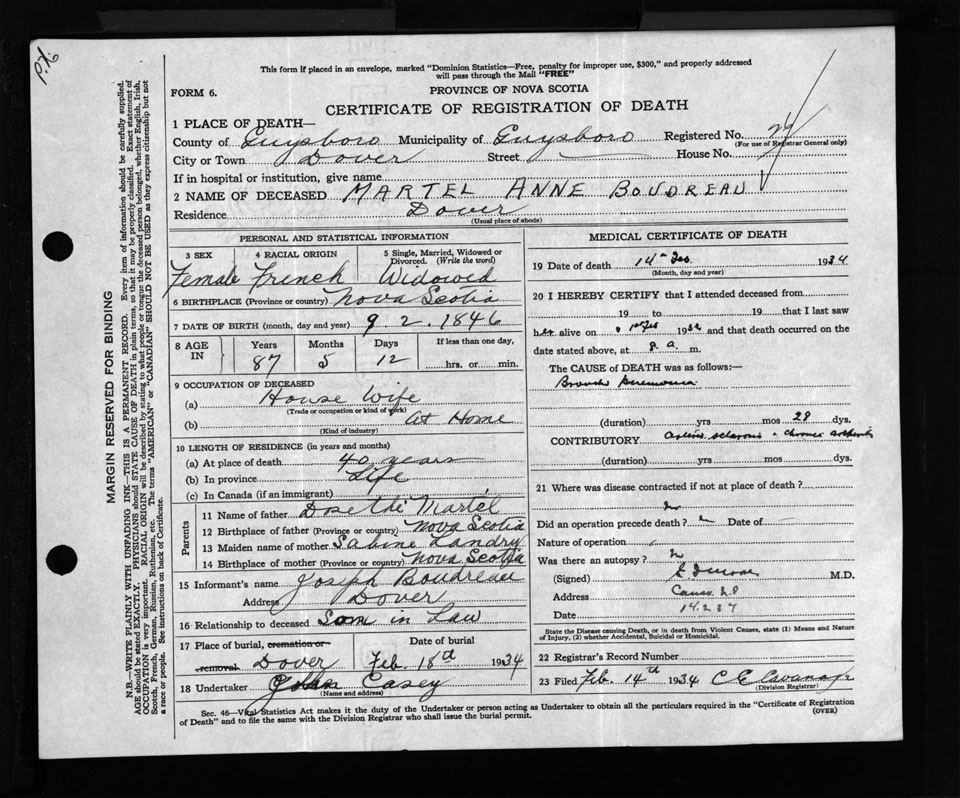 P.X.
This form if placed in an envelope, marked "Dominion Statistics—Free, penalty for improper use, $300," and properly addressed
will pass through the Mail "FREE"
FORM 6.
PROVINCE OF NOVA SCOTIA
CERTIFICATE OF REGISTRATION OF DEATH
1 PLACE OF DEATH—
County of Guysboro Municipality of Guysboro Registered No.
(For use of Registrar General only)
City or Town Dover Street House No.
If in hospital or institution, give name
2 NAME OF DECEASED MARTEL ANNE BOUDREAU
Residence Dover
(Usual place of abode)
MARGIN RESERVED FOR BINDING
N.B.—WRITE PLAINLY WITH UNFADING INK—THIS IS A PERMANENT RECORD. Every item of information should be carefully supplied.
AGE should be stated EXACTLY. PHYSICIANS should STATE CAUSE OF DEATH in plain terms, so that it may be properly classified. Exact statement of
OCCUPATION is very important. RACIAL ORIGIN will be described by stating to what people or tongue the deceased person belonged, whether English, Irish,
Scotch, French, German, Russian, Ruthenian, etc. The terms "AMERICAN" or "CANADIAN" SHOULD NOT BE USED as they express citizenship but not
a race or people. See instructions on back of Certificate.
PERSONAL AND STATISTICAL INFORMATION
3 SEX 4 RACIAL ORIGIN 5 Single, Married, Widowed or
Divorced. (Write the word)
Female French Widowed
6 BIRTHPLACE (Province or country) Nova Scotia
7 DATE OF BIRTH (month, day and year) 9. 2. 1846
8 AGE IN Years Months Days If less than one day,
87 5 12 hrs. or min.
9 OCCUPATION OF DECEASED
(a) House Wife
(Trade or occupation or kind of work)
(b) At Home
(Kind of industry)
10 LENGTH OF RESIDENCE (in years and months)
(a) At place of death 40 years
(b) In province Life
(c) In Canada (if an immigrant)
Parents
11 Name of father Martel
12 Birthplace of father (Province or country) Nova Scotia
13 Maiden name of mother Sabine Landry
14 Birthplace of mother (Province or country) Nova Scotia
15 Informant's name Joseph Boudreau
Address Dover
16 Relationship to deceased Son in Law
17 Place of burial, cremation or Date of burial
removal Dover Feb. 18th 1934
18 Undertaker John Casey
(Name and address)
MEDICAL CERTIFICATE OF DEATH
19 Date of death 14th Feb. 1934
(Month, day and year)
20 I HEREBY CERTIFY that I attended deceased from
19 to 19 that I last saw
her alive on 193 and that death occurred on
date stated above, at 8. a. m.
The CAUSE of DEATH was as follows:—
Broncho Pneumonia
(duration) yrs mos 28 dys.
CONTRIBUTORY Arterio sclerosis + chronic
(duration) yrs mos dys.
21 Where was disease contracted if not at place of death?
Did an operation precede death? Date of —
Nature of operation
Was there an autopsy?
(Signed) M.D.
Address Canso
Date
State the Disease causing Death, or in death from Violent Causes, state (1) Means and Nature
of Injury, (2) whether Accidental, Suicidal or Homicidal.
22 Registrar's Record Number
23 Filed Feb. 14th 1934
(Division Registrar)
Sec. 46—Vital Statistics Act makes it the duty of the Undertaker or person acting as Undertaker to obtain all the particulars required in the "Certificate of Registration
of Death" and to file the same with the Division Registrar who shall issue the burial permit. (OVER)